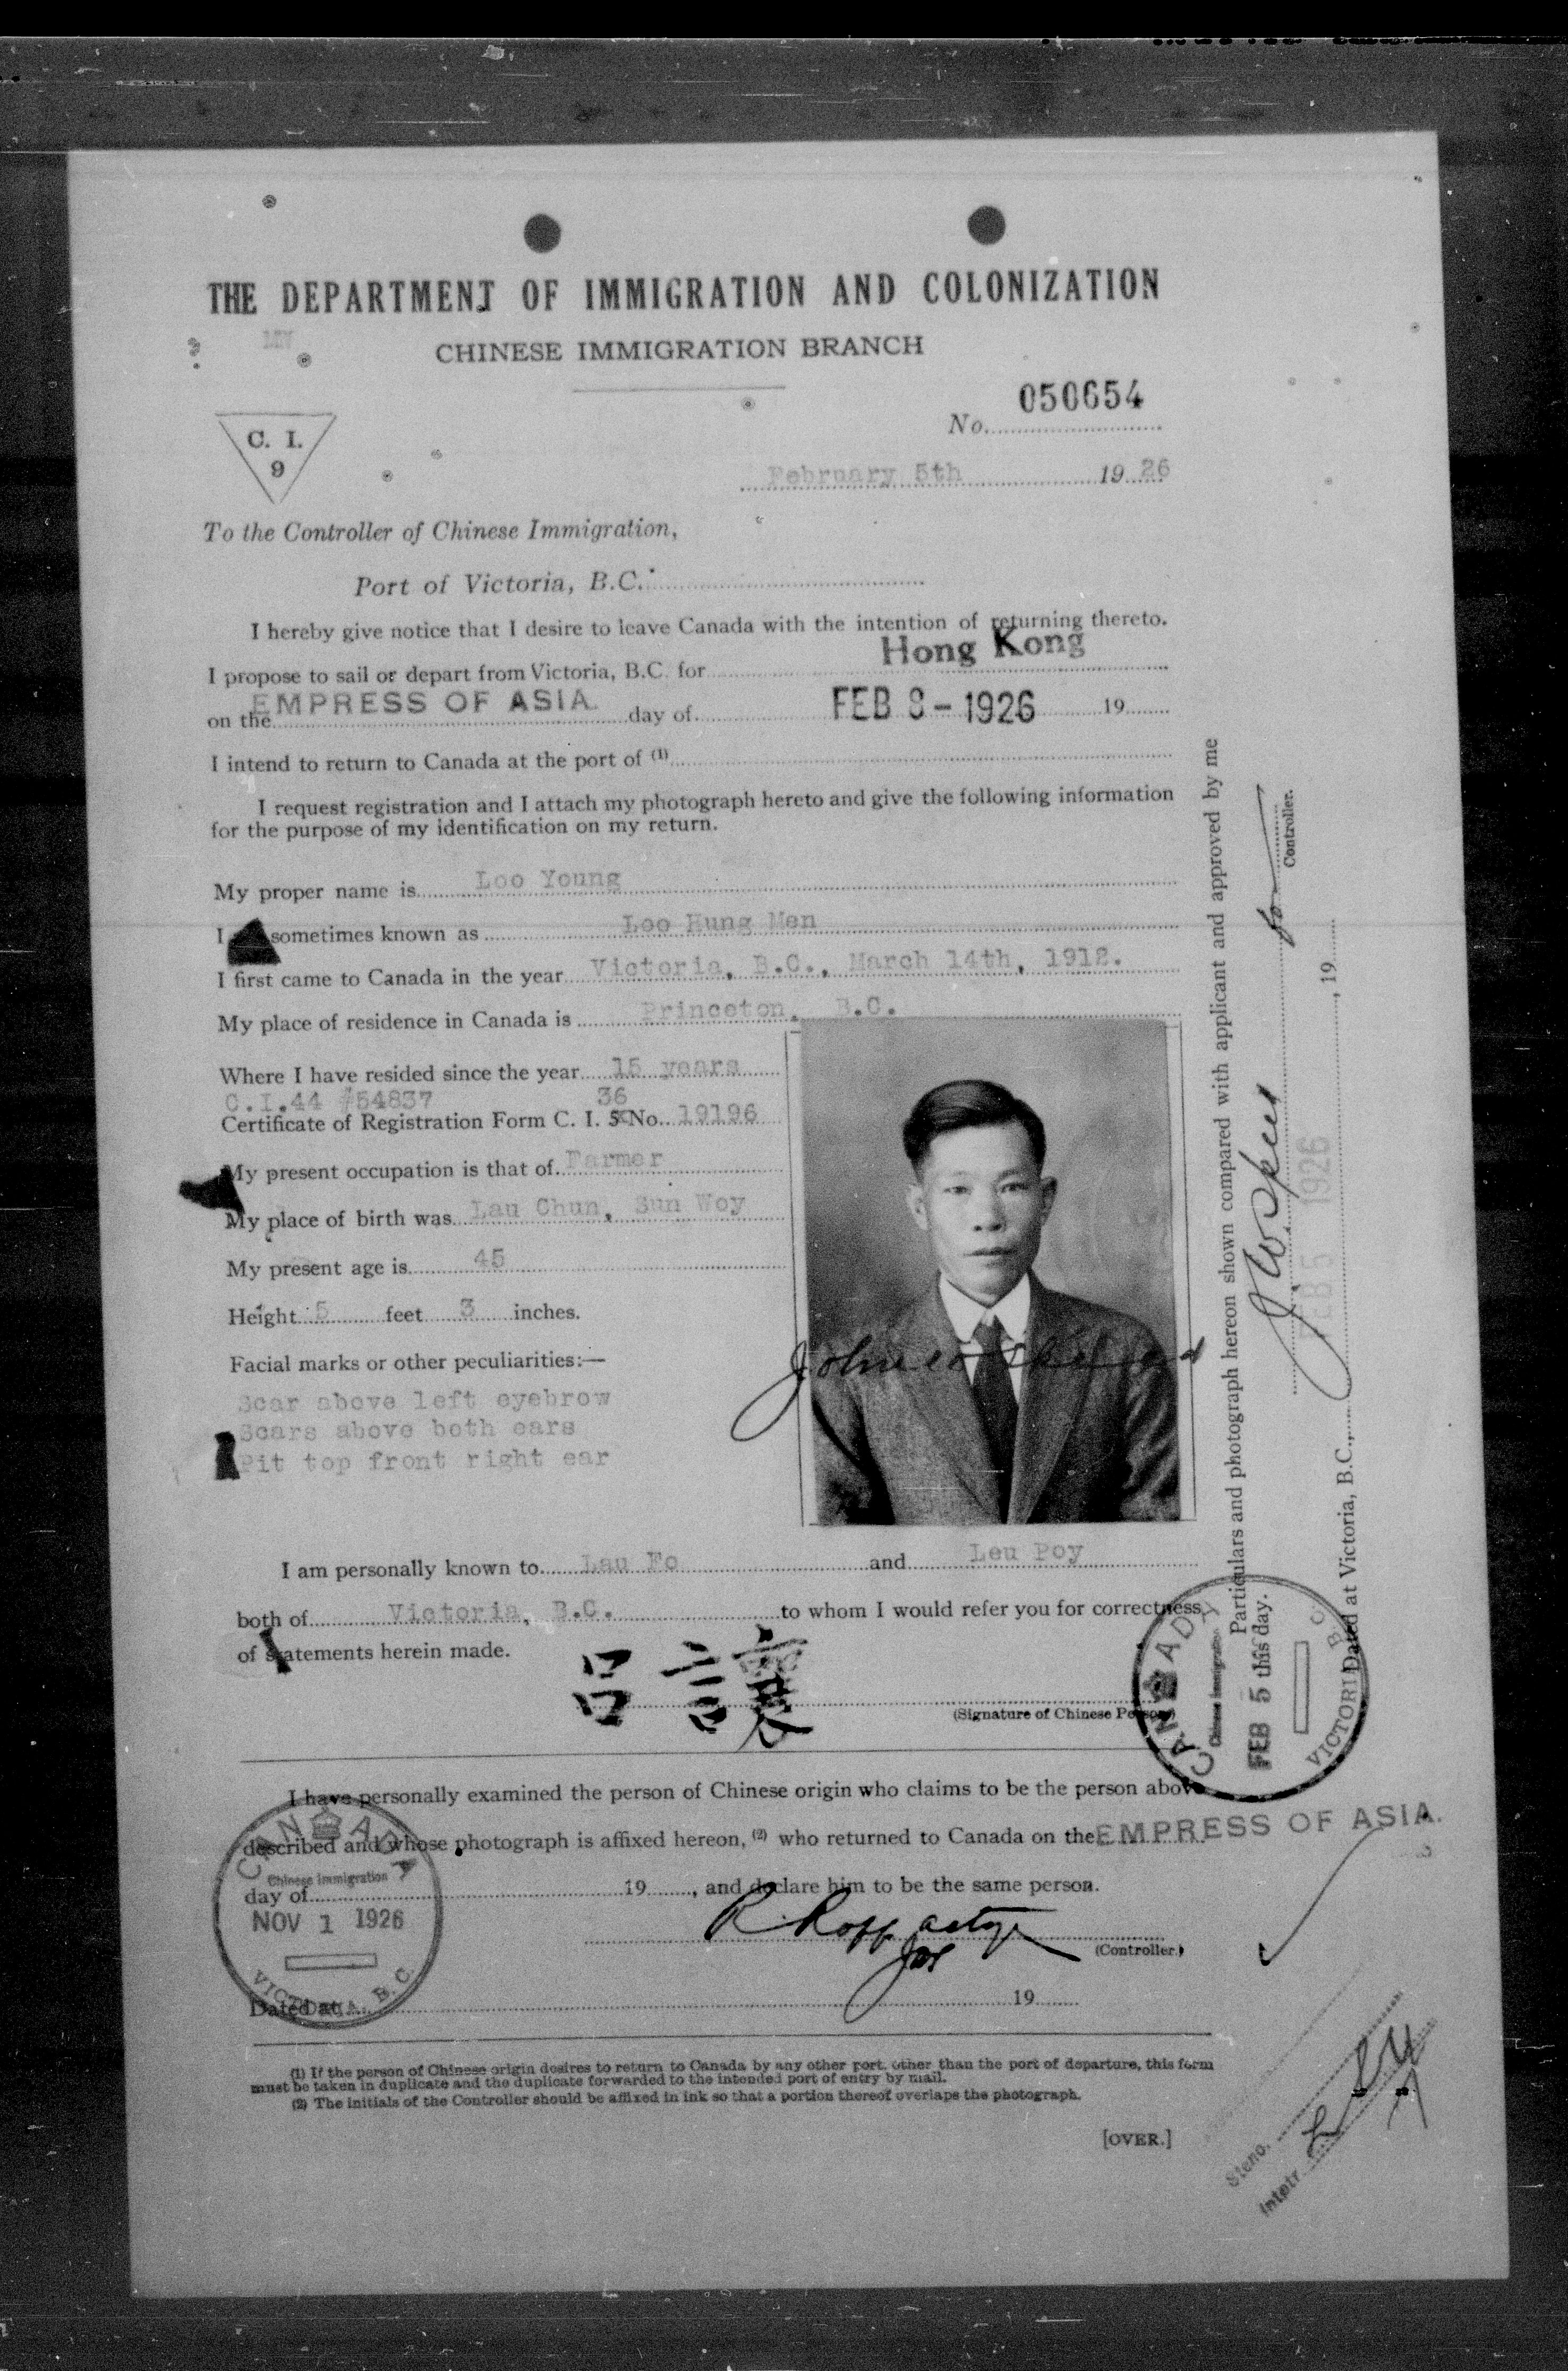 THE DEPARTMENT OF IMMIGRATION AND COLONIZATION
CHINESE IMMIGRATION BRANCH
C. I.
9
No. 050654
February 5th 19 26
To the Controller of Chinese Immigration,
Port of Victoria, B.C.
I hereby give notice that I desire to leave Canada with the intention of returning thereto.
I propose to sail or depart from Victoria, B.C. for Hong Kong
on the EMPRESS OF ASIA. day of FEB 8 - 1926 19
I intend to return to Canada at the port of (1)
I request registration and I attach my photograph hereto and give the following information
for the purpose of my identification on my return.
My proper name is Loo Young
I sometimes known as Loo Hung Men
I first came to Canada in the year Victoria, B.C., March 14th, 1912.
My place of residence in Canada is Princeton, B.C.
Where I have resided since the year 15 years
C.I.44 #54837 36
Certificate of Registration Form C. I. 5 No. 19196
My present occupation is that of Farmer
My place of birth was Lau Chun, Sun Woy
My present age is 45
Height 5 feet 3 inches.
Facial marks or other peculiarities:—
Scar above left eyebrow
Scars above both ears
Pit top front right ear
I am personally known to Lau Fo and Leu Poy
both of Victoria, B.C. to whom I would refer you for correctness
of statements herein made.
呂讓
(Signature of Chinese Person)
I have personally examined the person of Chinese origin who claims to be the person above
described and whose photograph is affixed hereon, (2) who returned to Canada on the EMPRESS OF ASIA.
day of 19 , and declare him to be the same person.
(Controller.)
Dated at 19
CANADA
Chinese Immigration
NOV 1 1926
VICTORIA, B.C.
(1) If the person of Chinese origin desires to return to Canada by any other port, other than the port of departure, this form
must be taken in duplicate and the duplicate forwarded to the intended port of entry by mail.
(2) The initials of the Controller should be affixed in ink so that a portion thereof overlaps the photograph.
[OVER.]
Particulars and photograph hereon shown compared with applicant and approved by me
this day.
Controller.
FEB 5 1926
Dated at Victoria, B.C., , 19
CANADA
Chinese Immigration
FEB 5
VICTORIA B.C.
Steno.
Intptr.